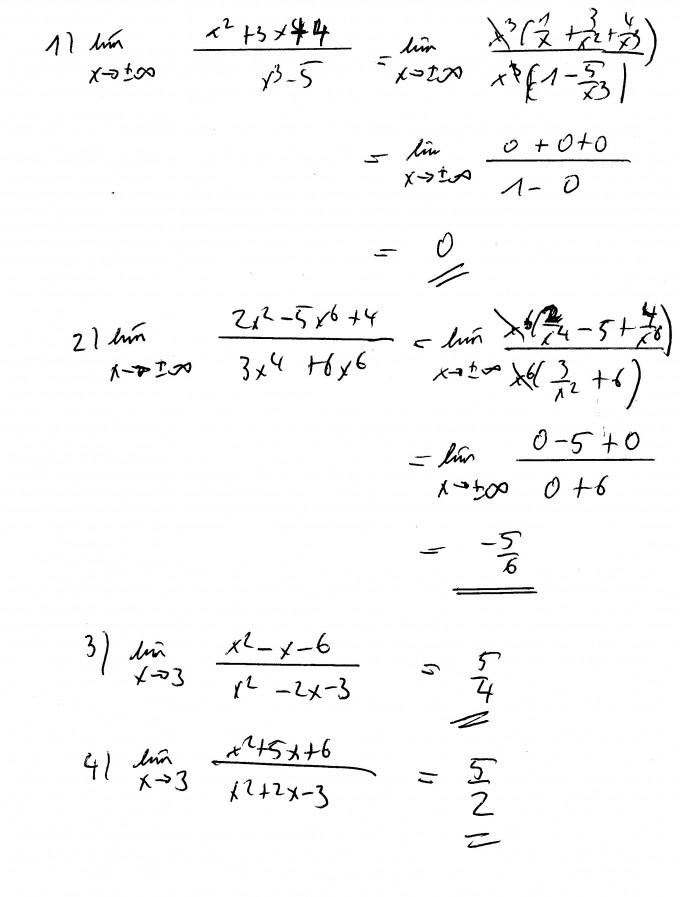 1) lim x→±∞ (x² + 3x + 4)/(x³ - 5) = lim x→±∞ x³(1/x + 3/x² + 4/x³)/x³(1 - 5/x³)
= lim x→±∞ (0 + 0 + 0)/(1 - 0)
= 0
2) lim x→±∞ (2x² - 5x⁶ + 4)/(3x⁴ + 6x⁶) = lim x→±∞ x⁶(2/x⁴ - 5 + 4/x⁶)/x⁶(3/x² + 6)
= lim x→±∞ (0 - 5 + 0)/(0 + 6)
= -5/6
3) lim x→3 (x² - x - 6)/(x² - 2x - 3) = 5/4
4) lim x→3 (x² + 5x + 6)/(x² + 2x - 3) = 5/2